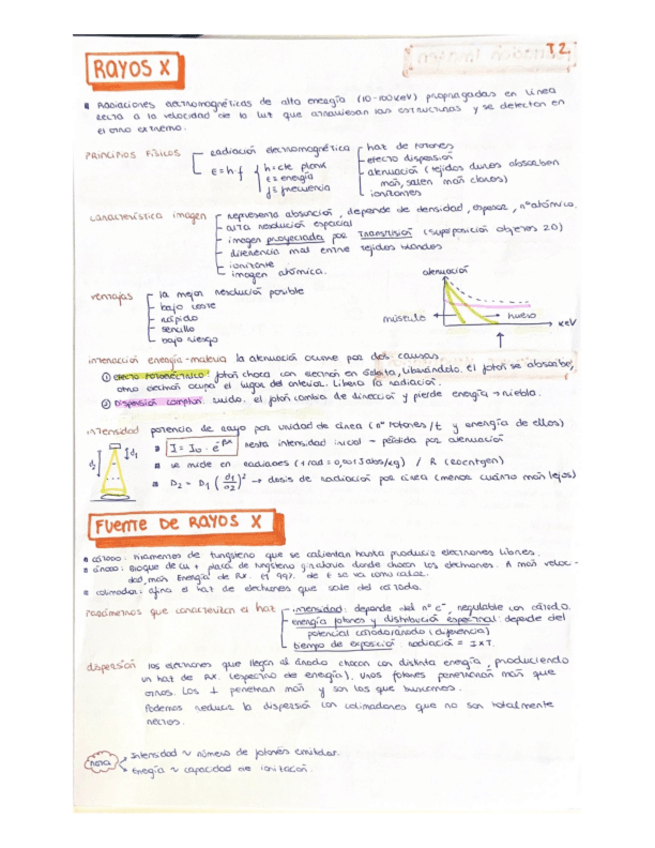 T2.
RAYOS X
Radiaciones electromagnéticas de alta energía (10-100KeV) propagadas en línea
recta a la velocidad de la luz que atraviesan las estructuras y se detectan en
el otro extremo.
PRINCIPIOS FÍSICOS
radiación electromagnética
E=h·f
h=cte plank
E=energía
f=frecuencia
haz de fotones
efecto dispersión
atenuación (tejidos duros absorben
más, salen más claros)
ionizantes
característica imagen
representa absorción, depende de densidad, espesor, nº atómico.
alta resolución espacial
imagen proyectada por transmisión (superposición objetos 2D)
diferencia mal entre tejidos blandos
ionizante
imagen atómica.
ventajas
la mejor resolución posible
bajo coste
rápido
sencillo
bajo riesgo
atenuación
músculo
hueso
KeV
interacción energía-materia la atenuación ocurre por dos causas
① efecto fotoeléctrico: fotón choca con electrón en órbita, liberándolo. El fotón se absorbe,
otro electrón ocupa el lugar del anterior. Libera la radiación.
② Dispersión compton: ruido. el fotón cambia de dirección y pierde energía → niebla.
intensidad potencia de rayo por unidad de área (nº fotones/t y energía de ellos)
I = I₀ · e^-μx resta intensidad inicial - pérdida por atenuación
se mide en radiaciones (1 rad = 0,001 Jabs/kg) / R (roentgen)
D₂ = D₁ (d1/d2)² → dosis de radiación por área (menor cuánto más lejos)
d₂
d₁
FUENTE DE RAYOS X
cátodo: filamentos de tungsteno que se calientan hasta producir electrones libres.
ánodo: Bloque de Cu + placa de tungsteno giratoria donde chocan los electrones. A más veloc-
dad, más Energía de Rx. El 99% de E se va como calor.
colimador: afina el haz de electrones que sale del cátodo.
Parámetros que caracterizan el haz
intensidad: depende del nº e⁻, regulable con cátodo.
energía fotones y distribución espectral: depende del
potencial cátodo/ánodo (diferencia)
tiempo de exposición: radiación = I×T.
dispersión los electrones que llegan al ánodo chocan con distinta energía, produciendo
un haz de RX. (espectro de energía). Unos fotones penetrarán más que
otros. Los ⊥ penetran más y son los que buscamos.
Podemos reducir la dispersión con colimadores que no son totalmente
nota
Intensidad ~ número de fotones emitidos.
Energía ~ capacidad de ionización.